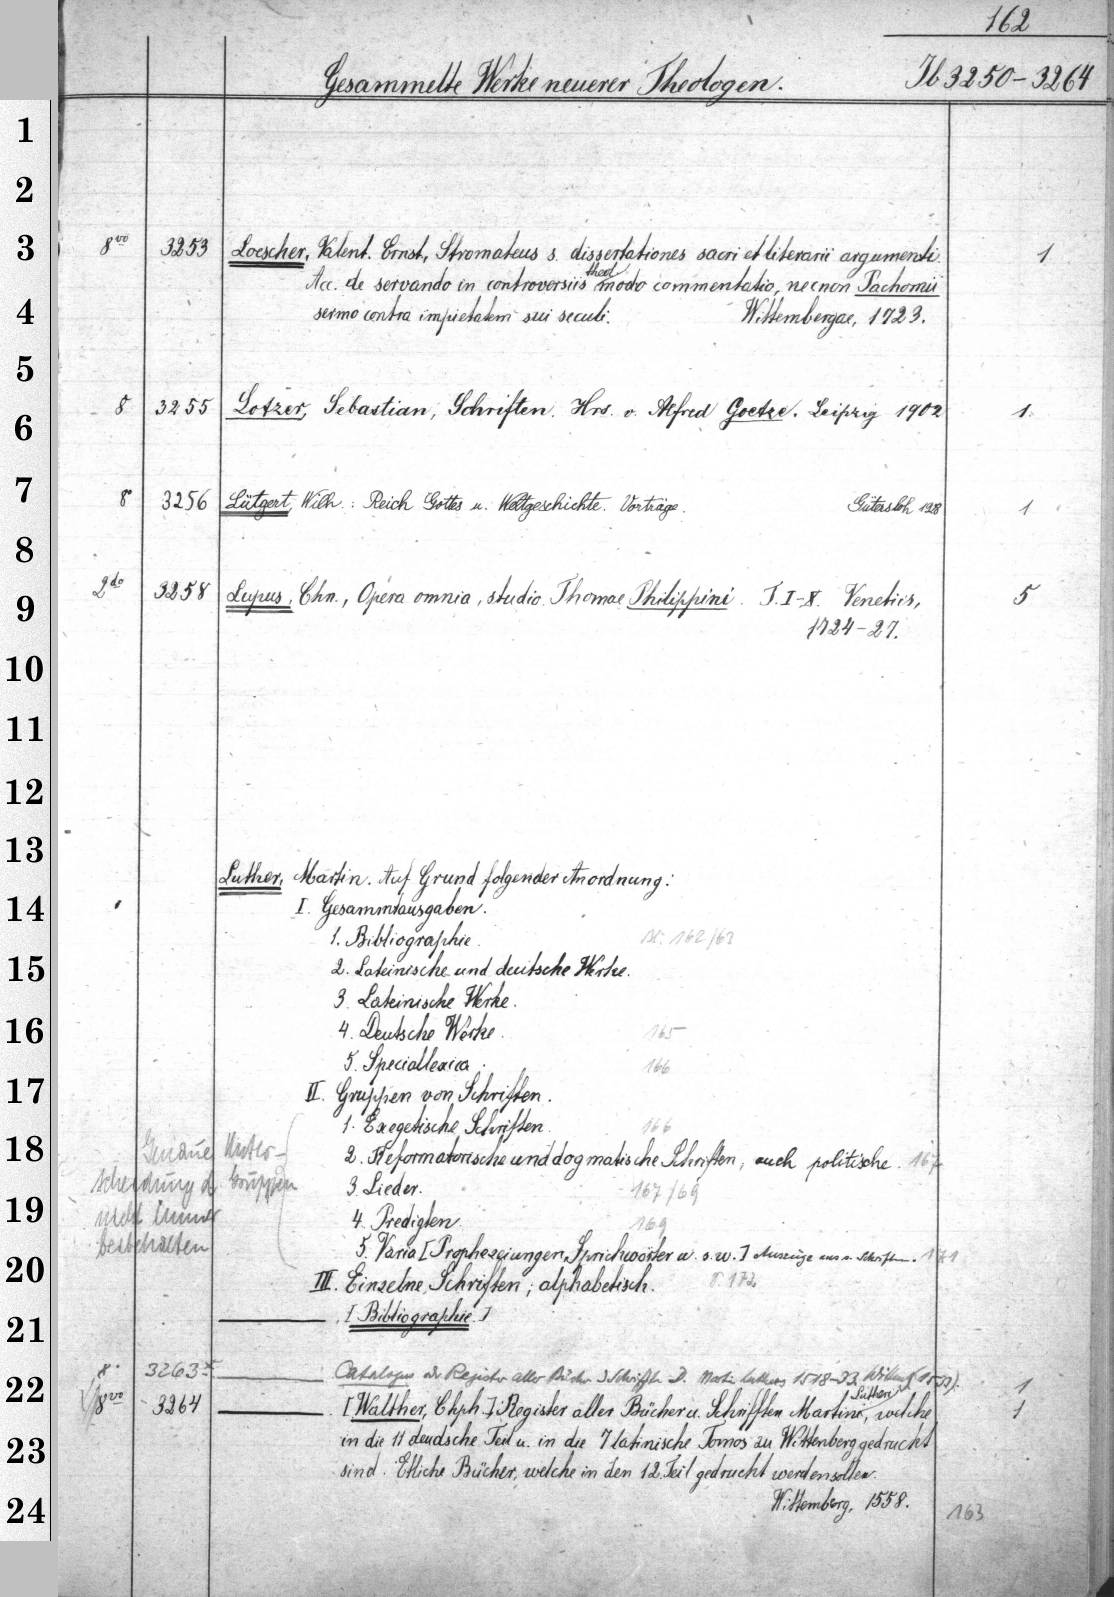 162
Gesammelte Werke neuerer Theologen. Ib 3250-3264
1
2
3
8vo 3253 Loescher, Valent. Ernst, Stromateus s. dissertationes sacri et literarii argumenti. 1
theol
Acc. de servando in controversiis modo commentatio, necnon Pachomii
4
sermo contra impietatem sui seculi. Wittembergae, 1723.
5
8 3255 Lotzer, Sebastian, Schriften. Hrs. v. Alfred Goetze. Leipzig 1902 1.
6
7
8 3256 Lütgert, Wilh.: Reich Gottes u. Weltgeschichte. Vorträge. Gütersloh 1928 1
8
2do 3258 Lupus, Chn., Opera omnia, studio Thomae Philippini. T. I-X. Venetiis, 5
9
1724-27.
10
11
12
13
Luther, Martin. Auf Grund folgender Anordnung:
14
I. Gesammtausgaben.
1. Bibliographie. Bl. 162/63
15
2. Lateinische und deutsche Werke.
3. Lateinische Werke.
16
4. Deutsche Werke. 165
5. Speciallexica. 166
17
II. Gruppen von Schriften.
1. Exegetische Schriften. 166
18
Genaue Unter-
2. Reformatorische und dogmatische Schriften, auch politische. 167
scheidung d. Gruppen
3. Lieder. 167/69
19
nicht immer
4. Predigten. 169
beibehalten
5. Varia [Prophezeiungen, Sprichwörter u. s. w.] Auszüge aus s. Schriften. 171
20
III. Einzelne Schriften, alphabetisch. 172
21
[Bibliographie.]
8° 3263 Catalogus oder Register aller Bücher u. Schriften D. Martin Luthers 1518-33. Wittenb. (1533). 1
22
Lutheri
8vo 3264 [Walther, Chph.]: Register aller Bücher u. Schrifften Martini, welche 1
in die 11 deudsche Teil u. in die 7 latinische Tomos zu Wittenberg gedruckt
23
sind. Etliche Bücher, welche in den 12. Teil gedruckt werden sollen.
24
Wittemberg, 1558.
163